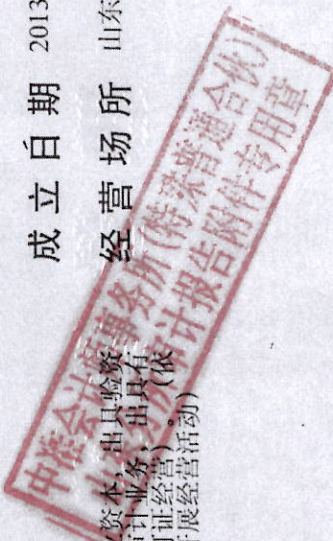 成立日期 2013
经营场所 山东
资本，出具验资
审计业务，出具有
可证经营）。（依
开展经营活动)
中准会计师事务所(特殊普通合伙)
山东分所审计报告附件专用章